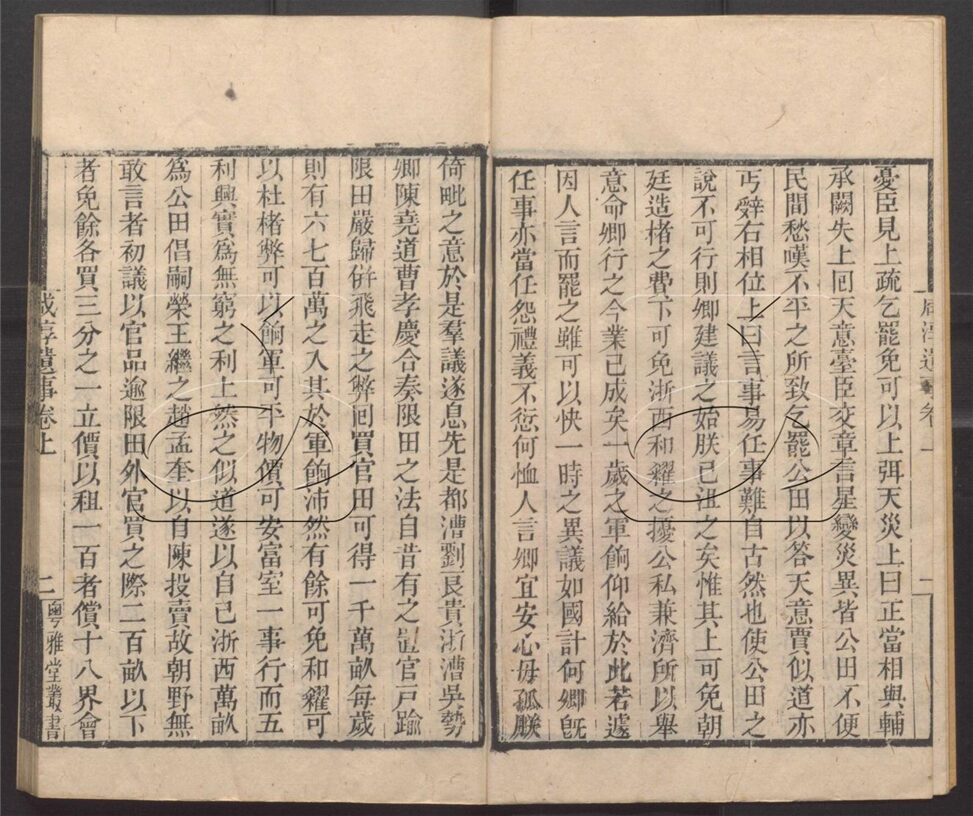 憂臣見上疏乞罷免可以上弭天災上曰正當相與輔
承闕失上囘天意臺臣交章言星變災異皆公田不便
民間愁嘆不平之所致乞罷公田以答天意賈似道亦
丐辭右相位上曰言事易任事難自古然也使公田之
說不可行則卿建議之始朕已沮之矣惟其上可免朝
廷造楮之費下可免浙西和糴之擾公私兼濟所以舉
意命卿行之今業已成矣一歲之軍餉仰給於此若遽
因人言而罷之雖可以快一時之異議如國計何卿旣
任事亦當任怨禮義不愆何恤人言卿宜安心毋孤朕
倚毗之意於是羣議遂息先是都漕劉良貴浙漕吳勢
卿陳堯道曹孝慶合奏限田之法自昔有之豈官戶踰
限田嚴歸併飛走之弊囘買官田可得一千萬畝每歲
則有六七百萬之入其於軍餉沛然有餘可免和糴可
以杜楮弊可以餉軍可平物價可安富室一事行而五
利興實爲無窮之利上然之似道遂以自己浙西萬畝
爲公田倡嗣榮王繼之趙孟奎以自陳投賣故朝野無
敢言者初議以官品逾限田外官買之際二百畝以下
者免餘各買三分之一立價以租一百者償十八界會
咸淳遺事卷上
二
粵雅堂叢書